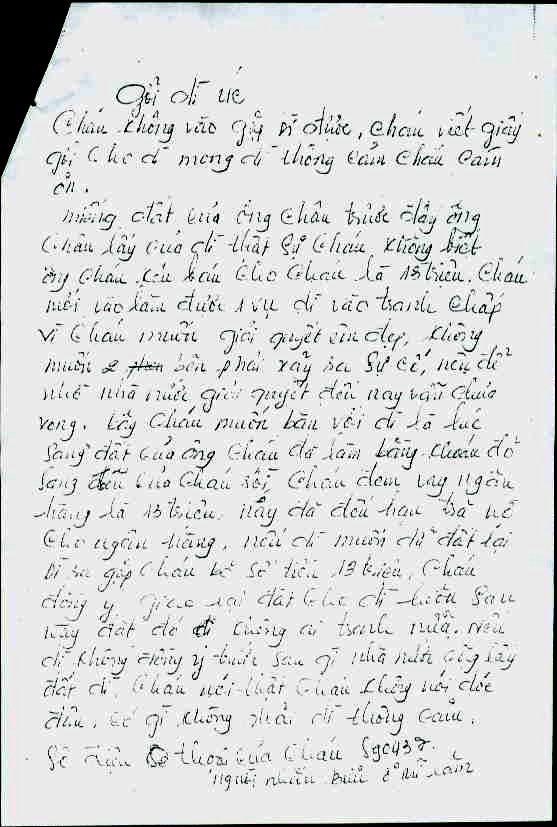 Gửi dì Úc
Cháu không vào gặp dì được, cháu viết giấy
gửi cho dì mong dì thông cảm cháu cảm
ơn.
miếng đất của ông Châu trước đây ông
Châu lấy của dì thật sự cháu không biết
ông Châu kêu bán cho cháu là 13 triệu. Cháu
mới vào làm được 1 vụ dì vào tranh chấp
Vì cháu muốn giải quyết êm đẹp, không
muốn 2 bên phải xảy ra sự cố, nên để
nhờ nhà nước giải quyết đến nay vẫn chưa
xong. Vậy cháu muốn bàn với dì là lúc
sang đất của ông Châu đã làm bằng khoán đỏ
sang tên của cháu rồi, cháu đem vay ngân
hàng là 13 triệu, nay đã đến hạn trả nợ
cho ngân hàng, nếu dì muốn đất lại
dì ra gặp cháu số tiền 13 triệu, cháu
đồng ý giao lại đất cho dì luôn sau
này đất đó không ai tranh nữa. nếu
dì không đồng ý trước sau gì nhà nước cũng lấy
đất dì. Cháu nói thật cháu không nói dóc
đâu, có gì không phải dì thông cảm.
Số điện thoại của cháu 590432.
người nhắn